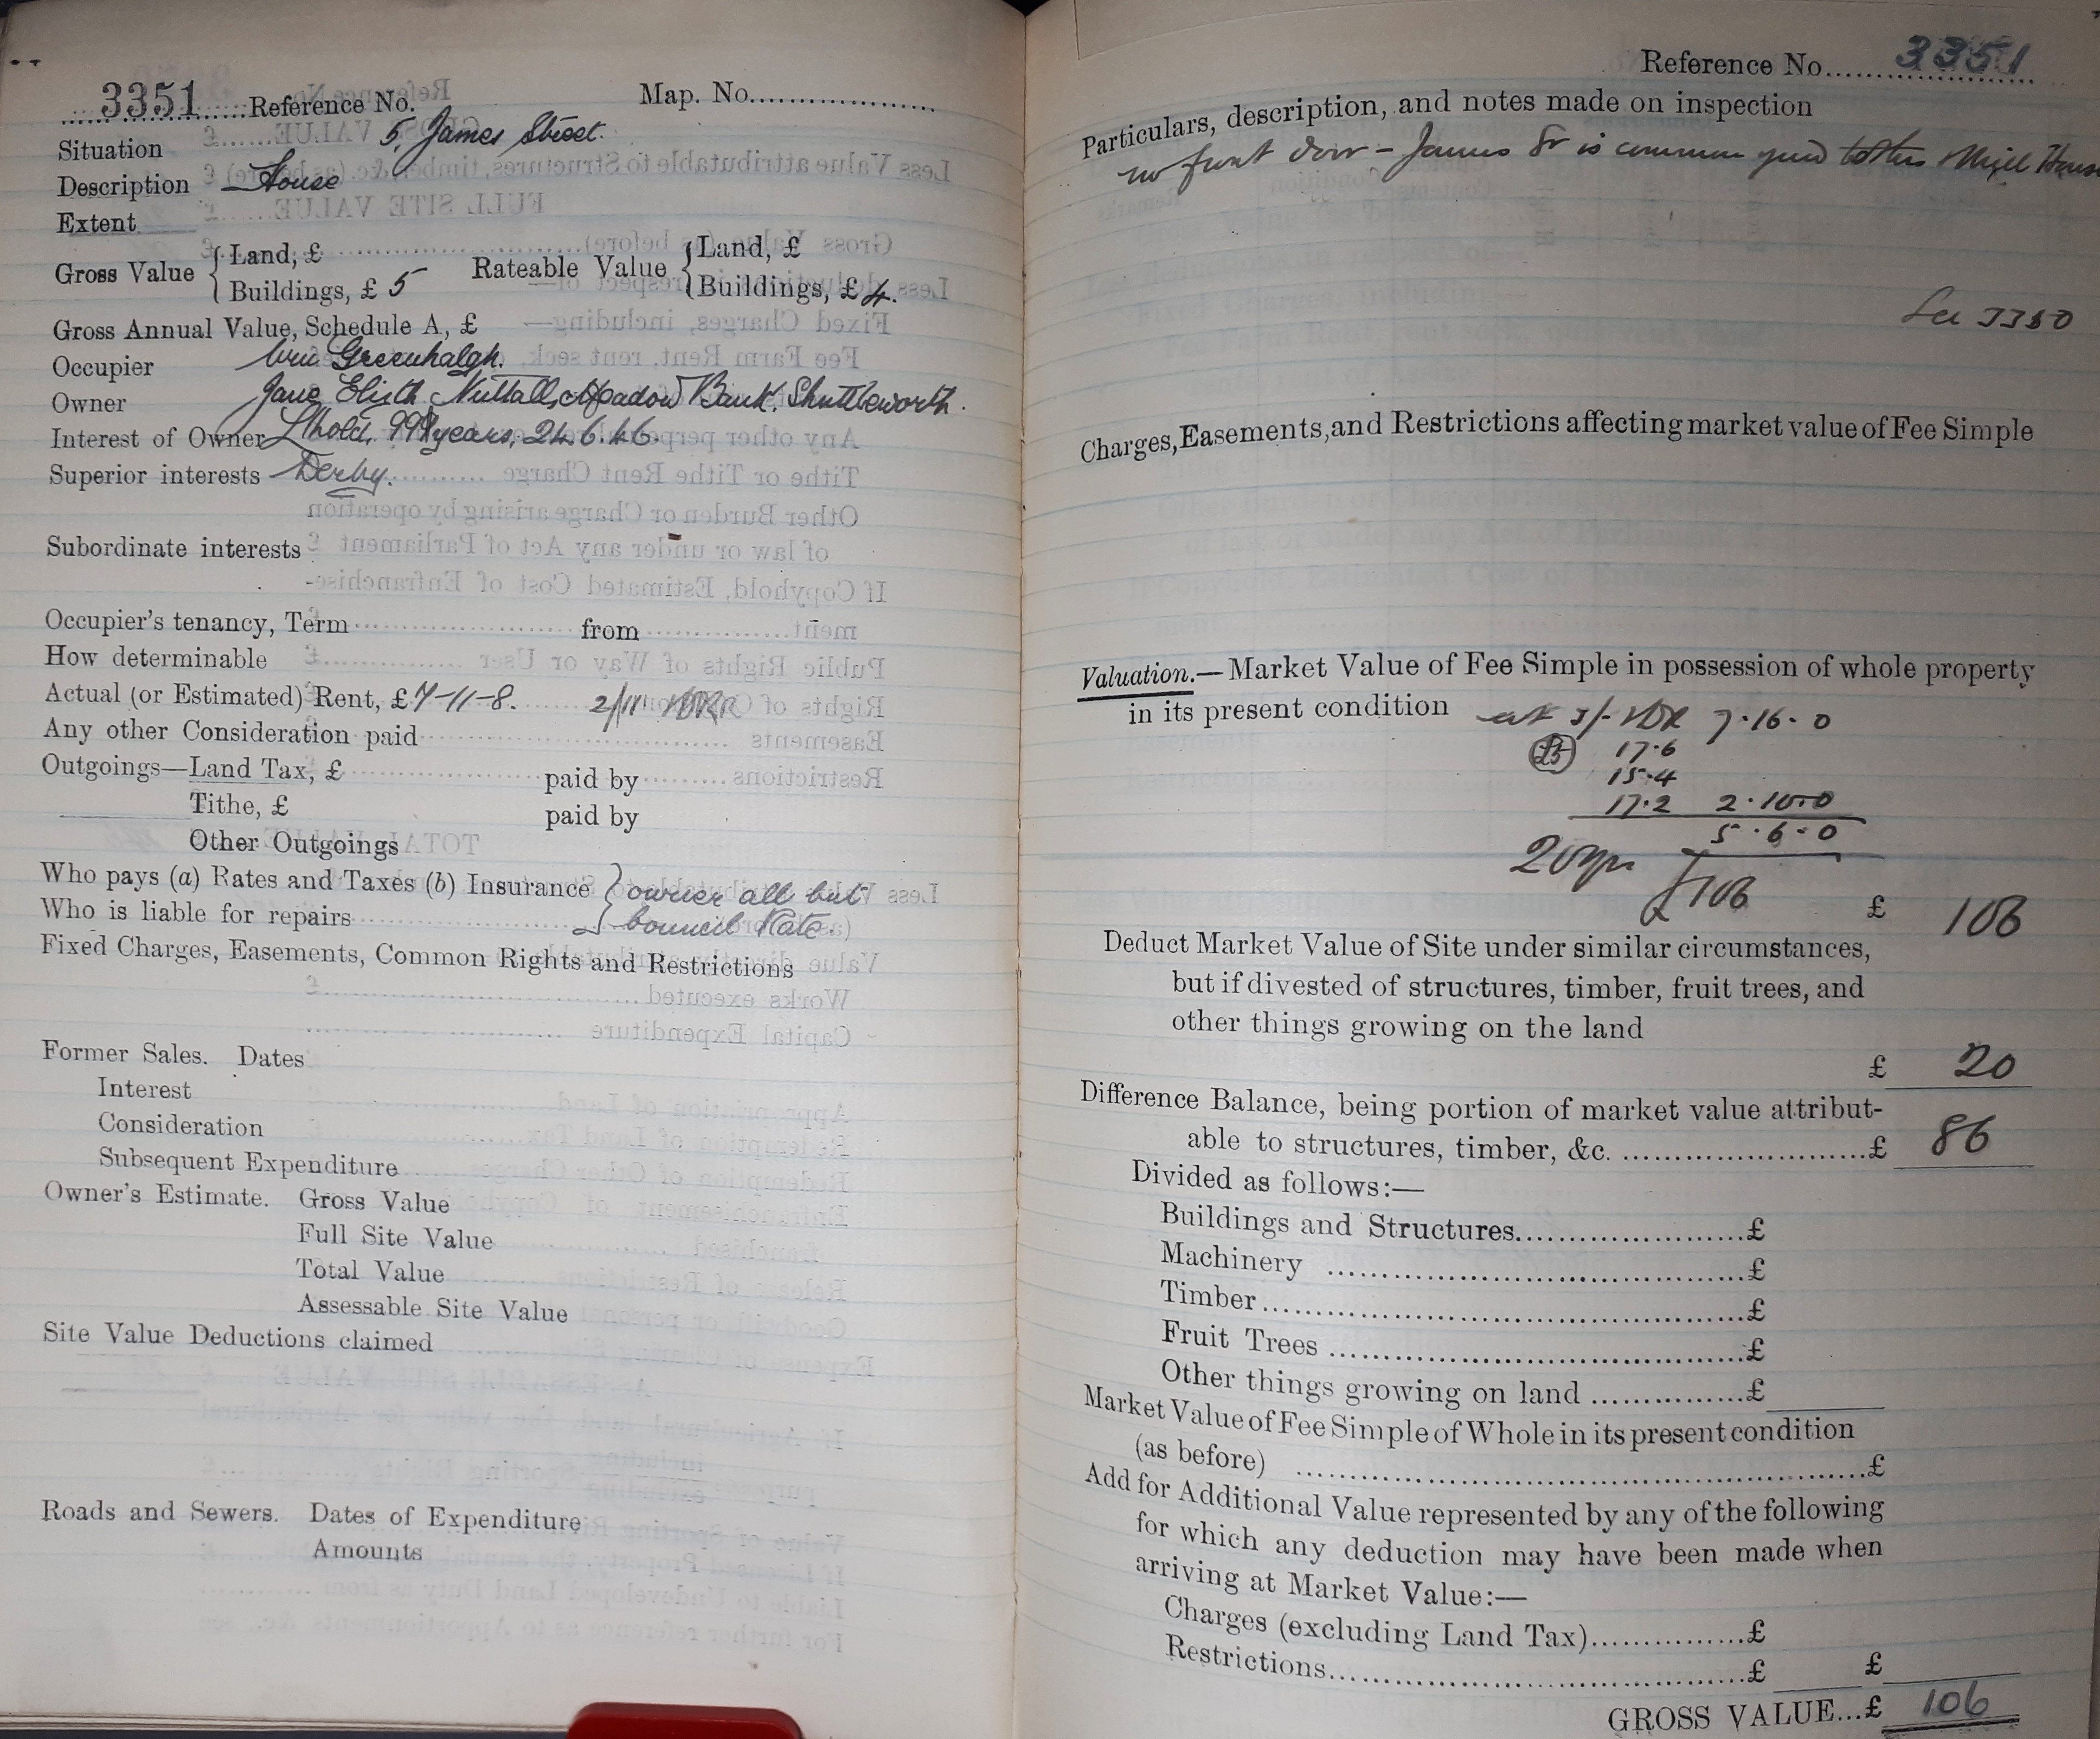 3351 Reference No. Map. No.
Situation 5, James Street.
Description House
Extent
Gross Value { Land, £ Rateable Value { Land, £
Buildings, £ 5 Buildings, £ 4.
Gross Annual Value, Schedule A, £
Occupier Wm Greenhalgh.
Owner Jane Elizth Nuttall, Meadow Bank, Shuttleworth.
Interest of Owner L'hold, 999 years, 24.6.46.
Superior interests Derby.
Subordinate interests
Occupier's tenancy, Term from
How determinable
Actual (or Estimated) Rent, £ 7-11-8. 2/11
Any other Consideration paid
Outgoings—Land Tax, £ paid by
Tithe, £ paid by
Other Outgoings
Who pays (a) Rates and Taxes (b) Insurance } owner all but
Who is liable for repairs } Council Rate.
Fixed Charges, Easements, Common Rights and Restrictions
Former Sales. Dates
Interest
Consideration
Subsequent Expenditure
Owner's Estimate. Gross Value
Full Site Value
Total Value
Assessable Site Value
Site Value Deductions claimed
Roads and Sewers. Dates of Expenditure
Amounts
Reference No. 3351
Particulars, description, and notes made on inspection
no front door - James St is common yard to this &
See 3350
Charges, Easements, and Restrictions affecting market value of Fee Simple
Valuation.—Market Value of Fee Simple in possession of whole property
in its present condition at 3/- 7.16.0
£5 17.6
15.4
17.2 2.10.0
5.6.0
20 yrs £106
£ 106
Deduct Market Value of Site under similar circumstances,
but if divested of structures, timber, fruit trees, and
other things growing on the land
£ 20
Difference Balance, being portion of market value attribut-
able to structures, timber, &c. £ 86
Divided as follows:—
Buildings and Structures £
Machinery £
Timber £
Fruit Trees £
Other things growing on land £
Market Value of Fee Simple of Whole in its present condition
(as before) £
Add for Additional Value represented by any of the following
for which any deduction may have been made when
arriving at Market Value:—
Charges (excluding Land Tax) £
Restrictions £ £
GROSS VALUE...£ 106